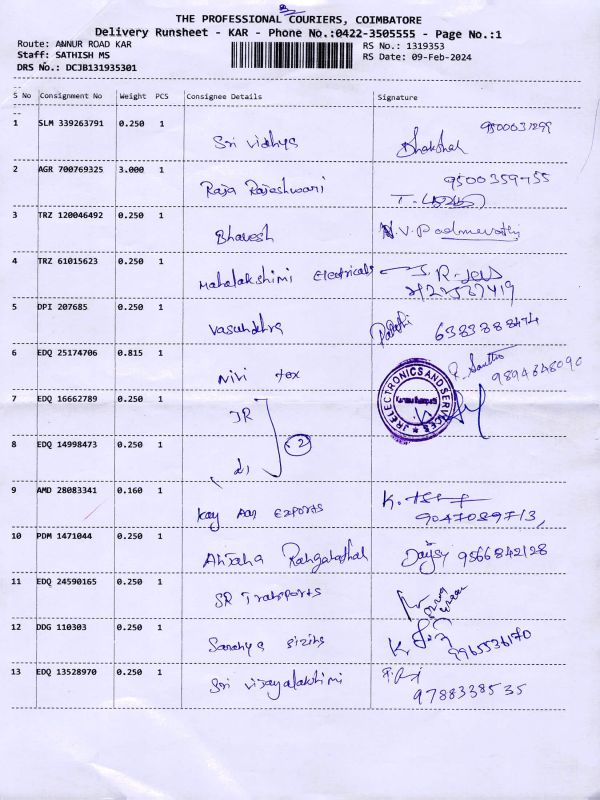 THE PROFESSIONAL COURIERS, COIMBATORE
Delivery Runsheet - KAR - Phone No.:0422-3505555 - Page No.:1
Route: ANNUR ROAD KAR
Staff: SATHISH MS
DRS No.: DCJB131935301
RS No.: 1319353
RS Date: 09-Feb-2024
S No Consignment No Weight PCS Consignee Details Signature
1 SLM 339263791 0.250 1 Sri Vidhya
2 AGR 700769325 3.000 1 Raja Rajeshwari 9500359755
3 TRZ 120046492 0.250 1 Bhavesh N.V.Padmavathi
4 TRZ 61015623 0.250 1 Mahalakshimi Electricals
5 DPI 207685 0.250 1 Vasundhra 6383888474
6 EDQ 25174706 0.815 1 Nivi tex 9894648090
7 EDQ 16662789 0.250 1 JR
JR ELECTRONICS AND SERVICES
8 EDQ 14998473 0.250 1 2
9 AMD 28083341 0.160 1 Kay Aar Exports
9047089713,
10 PDM 1471044 0.250 1 Daisy 9566842128
11 EDQ 24590165 0.250 1 SR Transports
12 DDG 110303 0.250 1 9965536170
13 EDQ 13528970 0.250 1 Sri Vijayalakshimi
9788338535